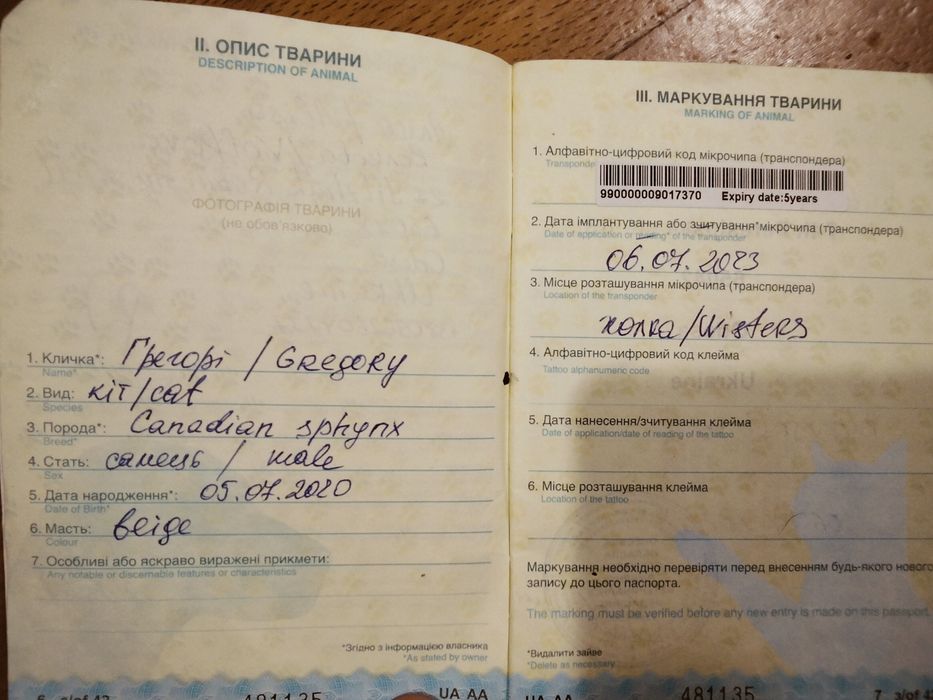 II. ОПИС ТВАРИНИ
DESCRIPTION OF ANIMAL
ФОТОГРАФІЯ ТВАРИНИ
(не обов'язково)
1. Кличка*: Грегорі / Gregory
Name*
2. Вид: кіт/cat
Species
3. Порода*: Canadian sphynx
Breed*
4. Стать: самець / male
Sex
5. Дата народження*: 05.07.2020
Date of Birth*
6. Масть: beige
Colour
7. Особливі або яскраво виражені прикмети:
Any notable or discernable features or characteristics
*Згідно з інформацією власника
*As stated by owner
6 з/of 42 481135 UA AA
III. МАРКУВАННЯ ТВАРИНИ
MARKING OF ANIMAL
1. Алфавітно-цифровий код мікрочипа (транспондера)
990000009017370 Expiry date:5years
2. Дата імплантування або зчитування*мікрочипа (транспондера)
Date of application or reading* of the transponder
06.07.2023
3. Місце розташування мікрочипа (транспондера)
Location of the transponder
холка/Wisters
4. Алфавітно-цифровий код клейма
Tattoo alphanumeric code
5. Дата нанесення/зчитування клейма
Date of application/date of reading of the tattoo
6. Місце розташування клейма
Location of the tattoo
Маркування необхідно перевіряти перед внесенням будь-якого нового
запису до цього паспорта.
The marking must be verified before any new entry is made on this passport.
*Видалити зайве
*Delete as necessary
UA AA 481135 7 з/of